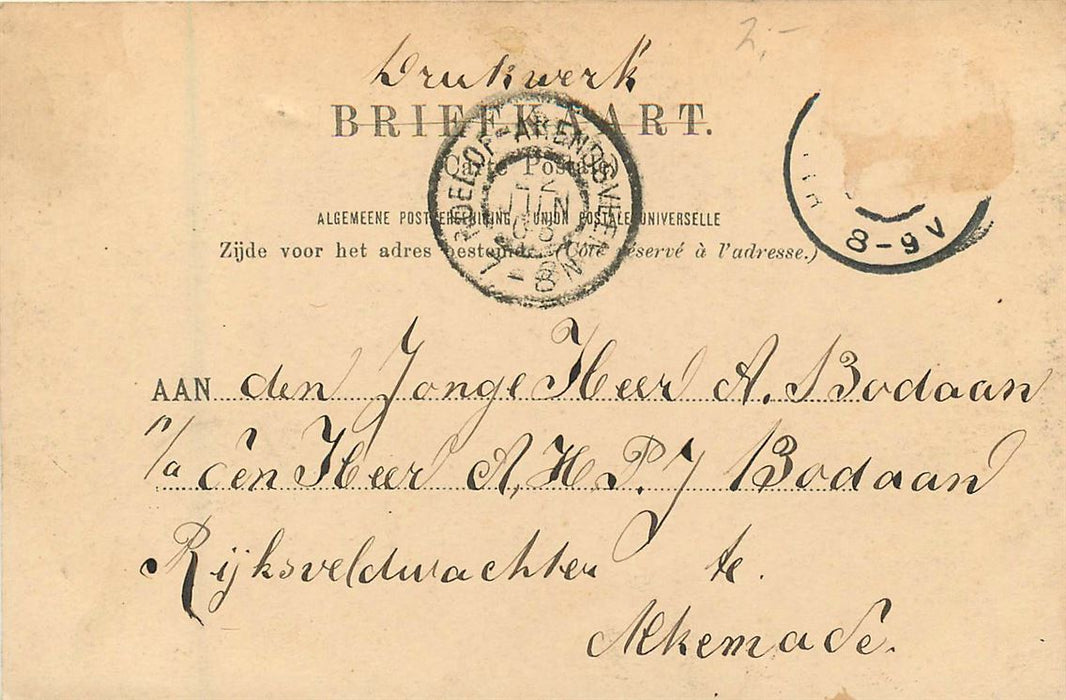 2,-
Drukwerk
BRIEFKAART.
Carte Postale
ALGEMEENE POSTVEREENIGING UNION POSTALE UNIVERSELLE
Zijde voor het adres bestemd. (Côté réservé à l'adresse.)
ROELOF-ARENDSVEEN
JUN
8-9V
AAN den Jonge Heer A. Bodaan
p/a den Heer A, H P. J Bodaan
Rijksveldwachter te.
Alkemade.